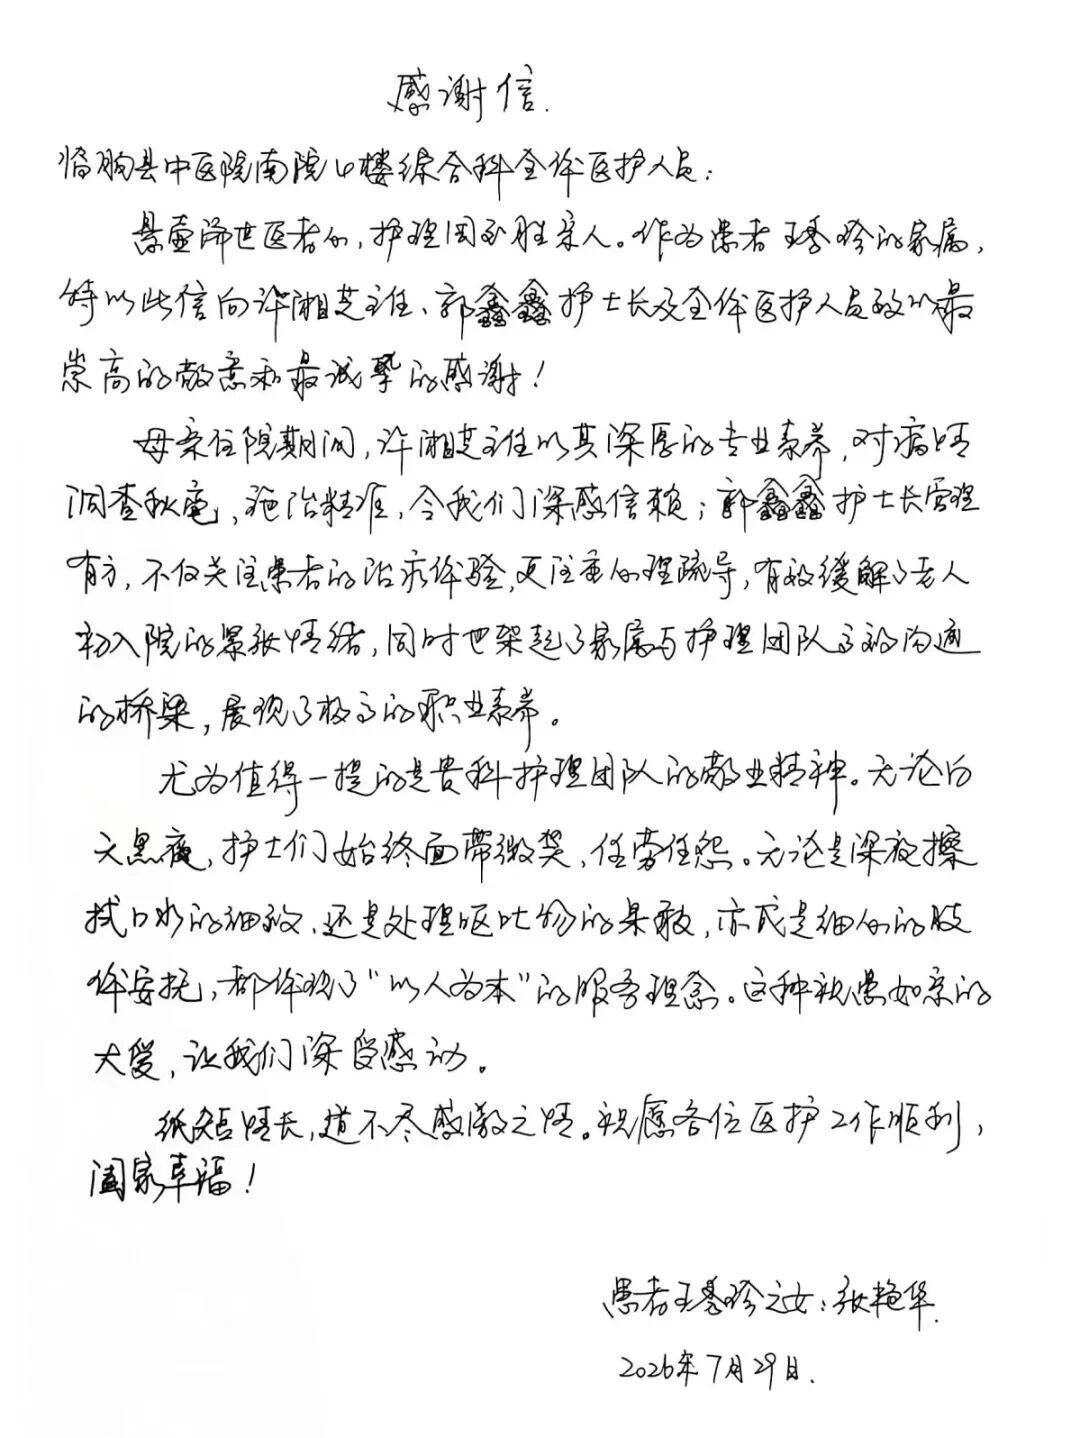 感谢信.
临朐县中医院南院4楼综合科全体医护人员:
悬壶济世医者心,护理周至胜亲人。作为患者王秀珍的家属,
特以此信向许湘芝主任、郭鑫鑫护士长及全体医护人员致以最
崇高的敬意和最诚挚的感谢!
母亲住院期间,许湘芝主任以其深厚的专业素养,对病情
洞查秋毫,施治精准,令我们深感信赖;郭鑫鑫护士长管理
有方,不仅关注患者的治疗体验,更注重心理疏导,有效缓解了老人
初入院的紧张情绪,同时也架起了家属与护理团队高效沟通
的桥梁,展现了极高的职业素养。
尤为值得一提的是贵科护理团队的敬业精神。无论白
天黑夜,护士们始终面带微笑,任劳任怨。无论是深夜擦
拭口水的细致,还是处理呕吐物的果敢,亦或是细心的肢
体安抚,都体现了“以人为本”的服务理念。这种视患如亲的
大爱,让我们深受感动。
纸短情长,道不尽感激之情。祝愿各位医护工作顺利,
阖家幸福!
患者王秀珍之女:张艳华.
2026年7月29日.